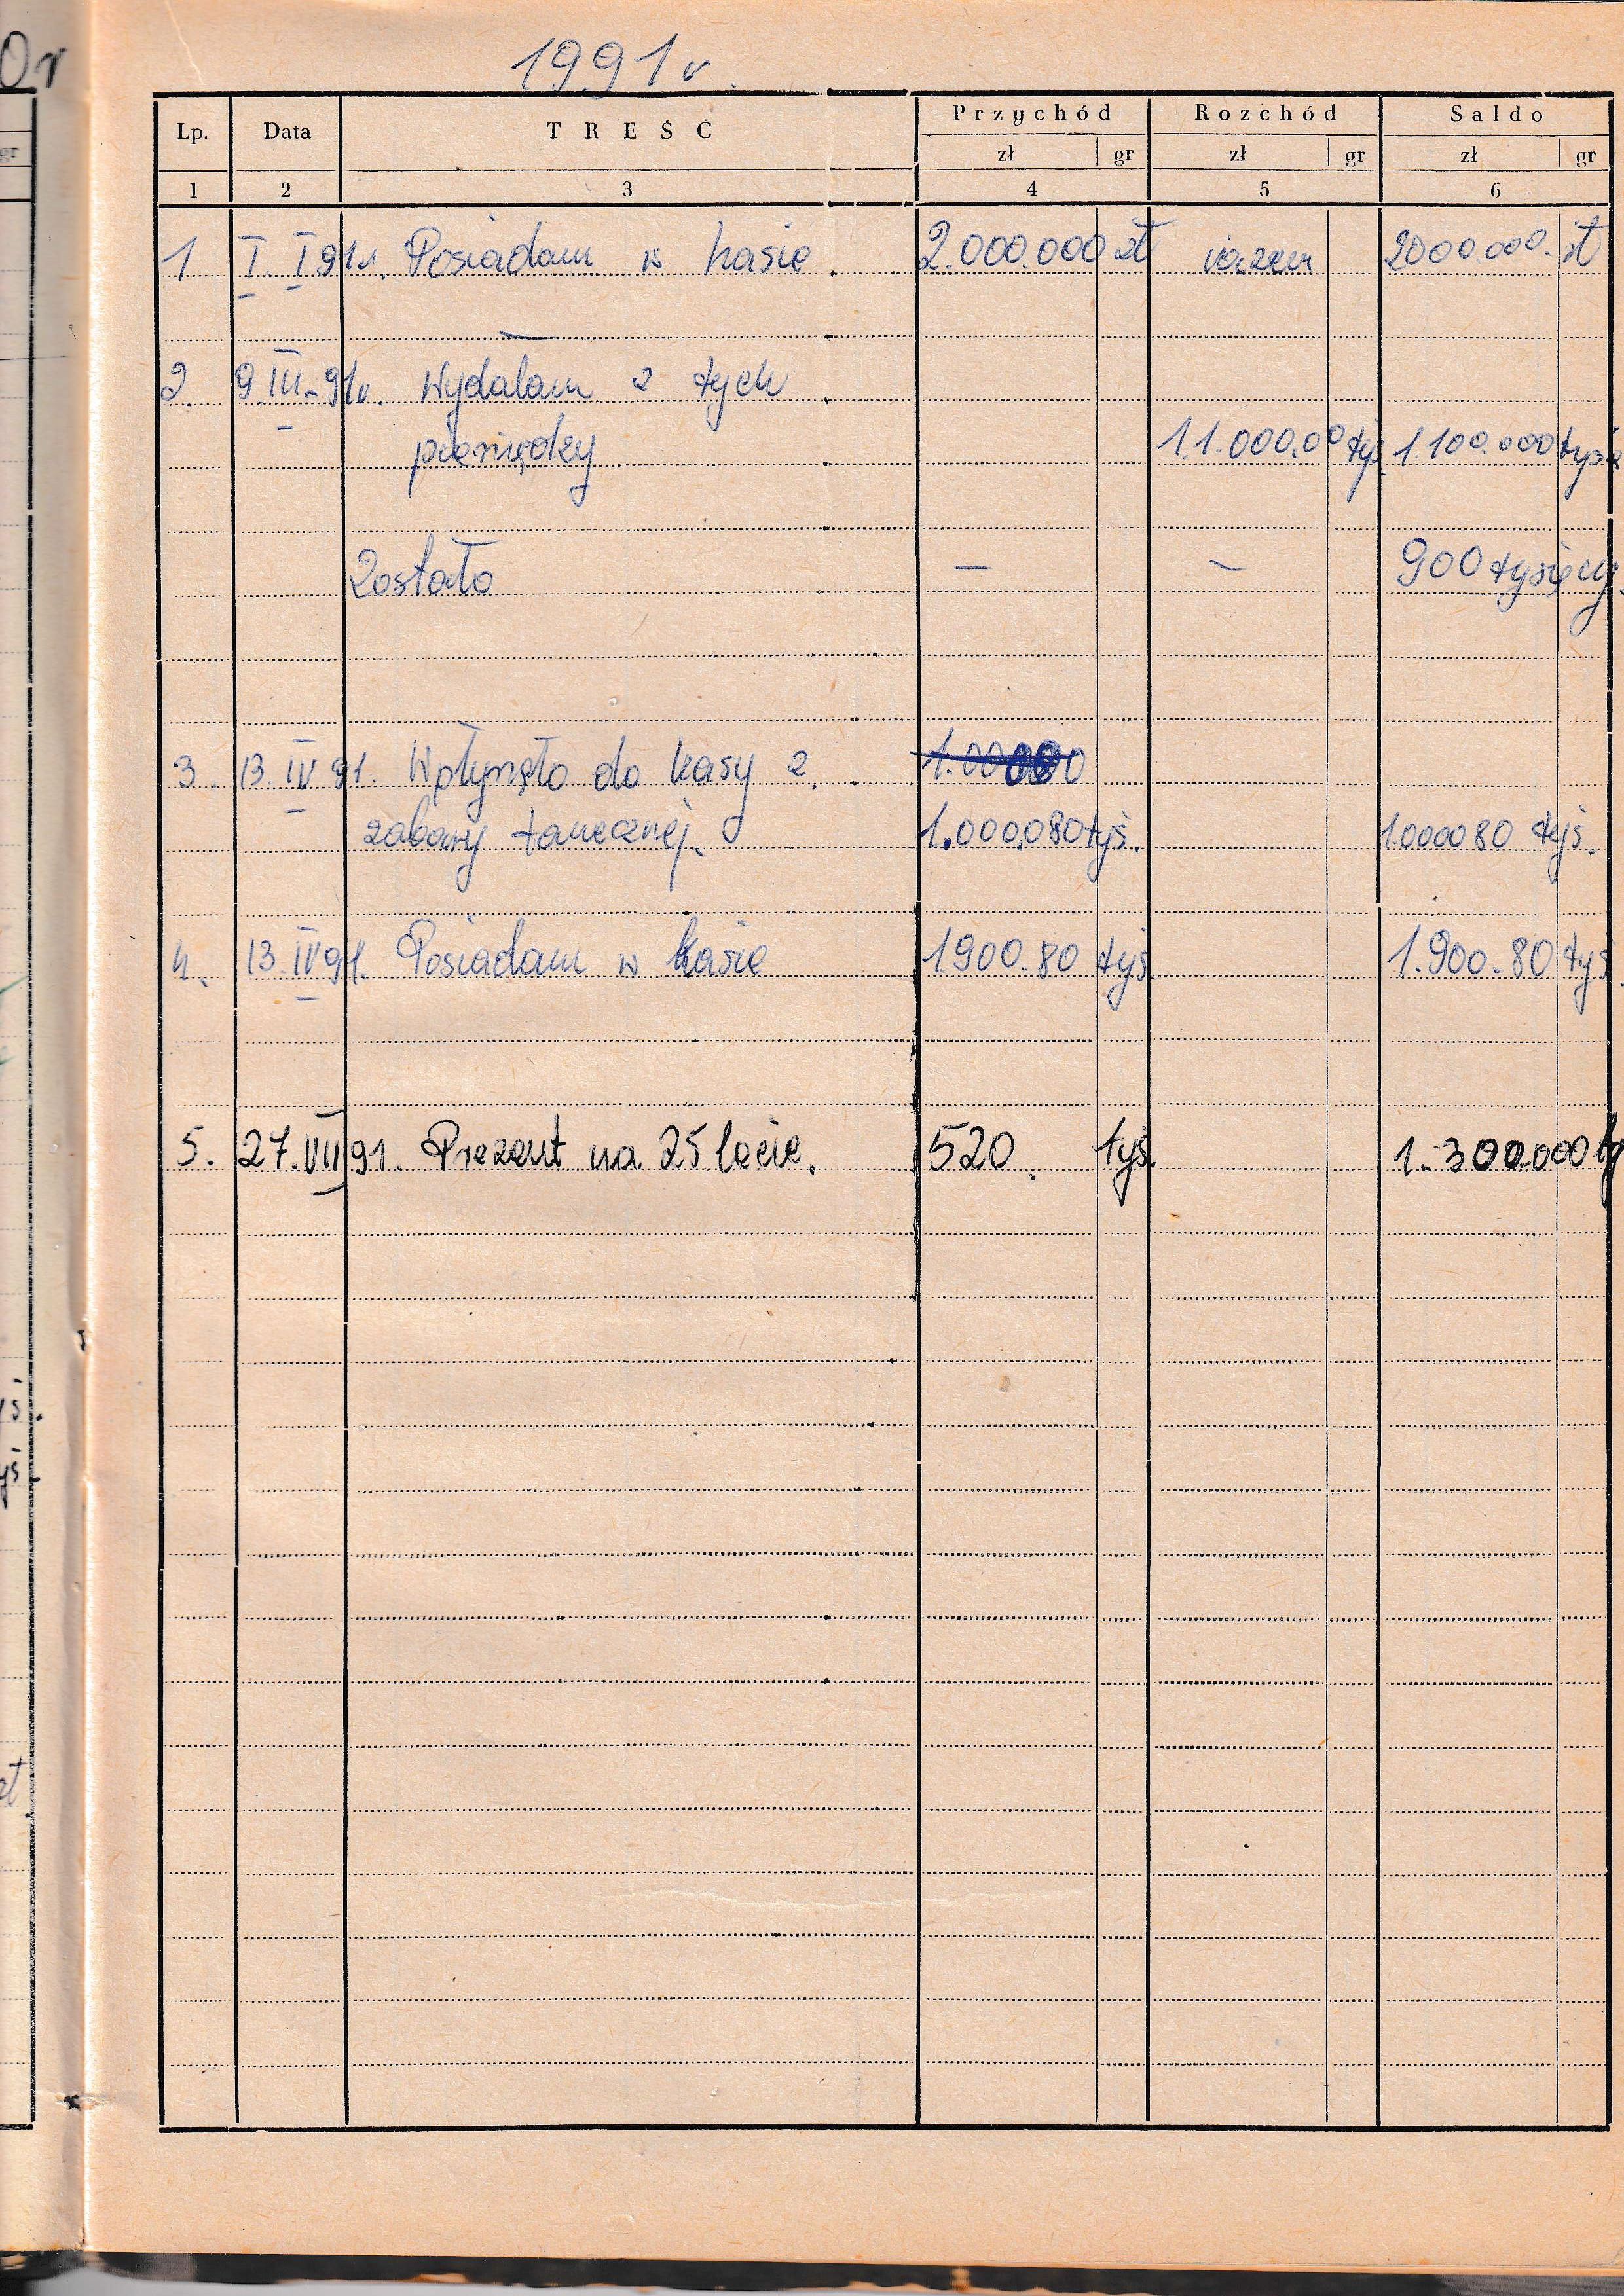 0r
1991 r.
Lp. Data TREŚĆ Przychód Rozchód Saldo
gr zł gr zł gr zł gr
1 2 3 4 5 6
1 I. I 91r. Posiadam w kasie. 2.000.000 zł razem 2000.000. zł
2. 9.III-91r. Wydałam z tych
pieniędzy 11.000.00 tyś 1.100.000 tyś
Zostało — — 900 tysięcy
3. 13.IV 91. Wpłynęło do kasy z
zabawy tanecznej. 1.000.080 tyś. 1000080 tyś.
4. 13.IV 91. Posiadam w kasie 1900.80 tyś 1.900.80 tyś
5. 27.VII 91. Prezent na 25 lecie. 520. tyś. 1.300.000 ty
yś.
zł